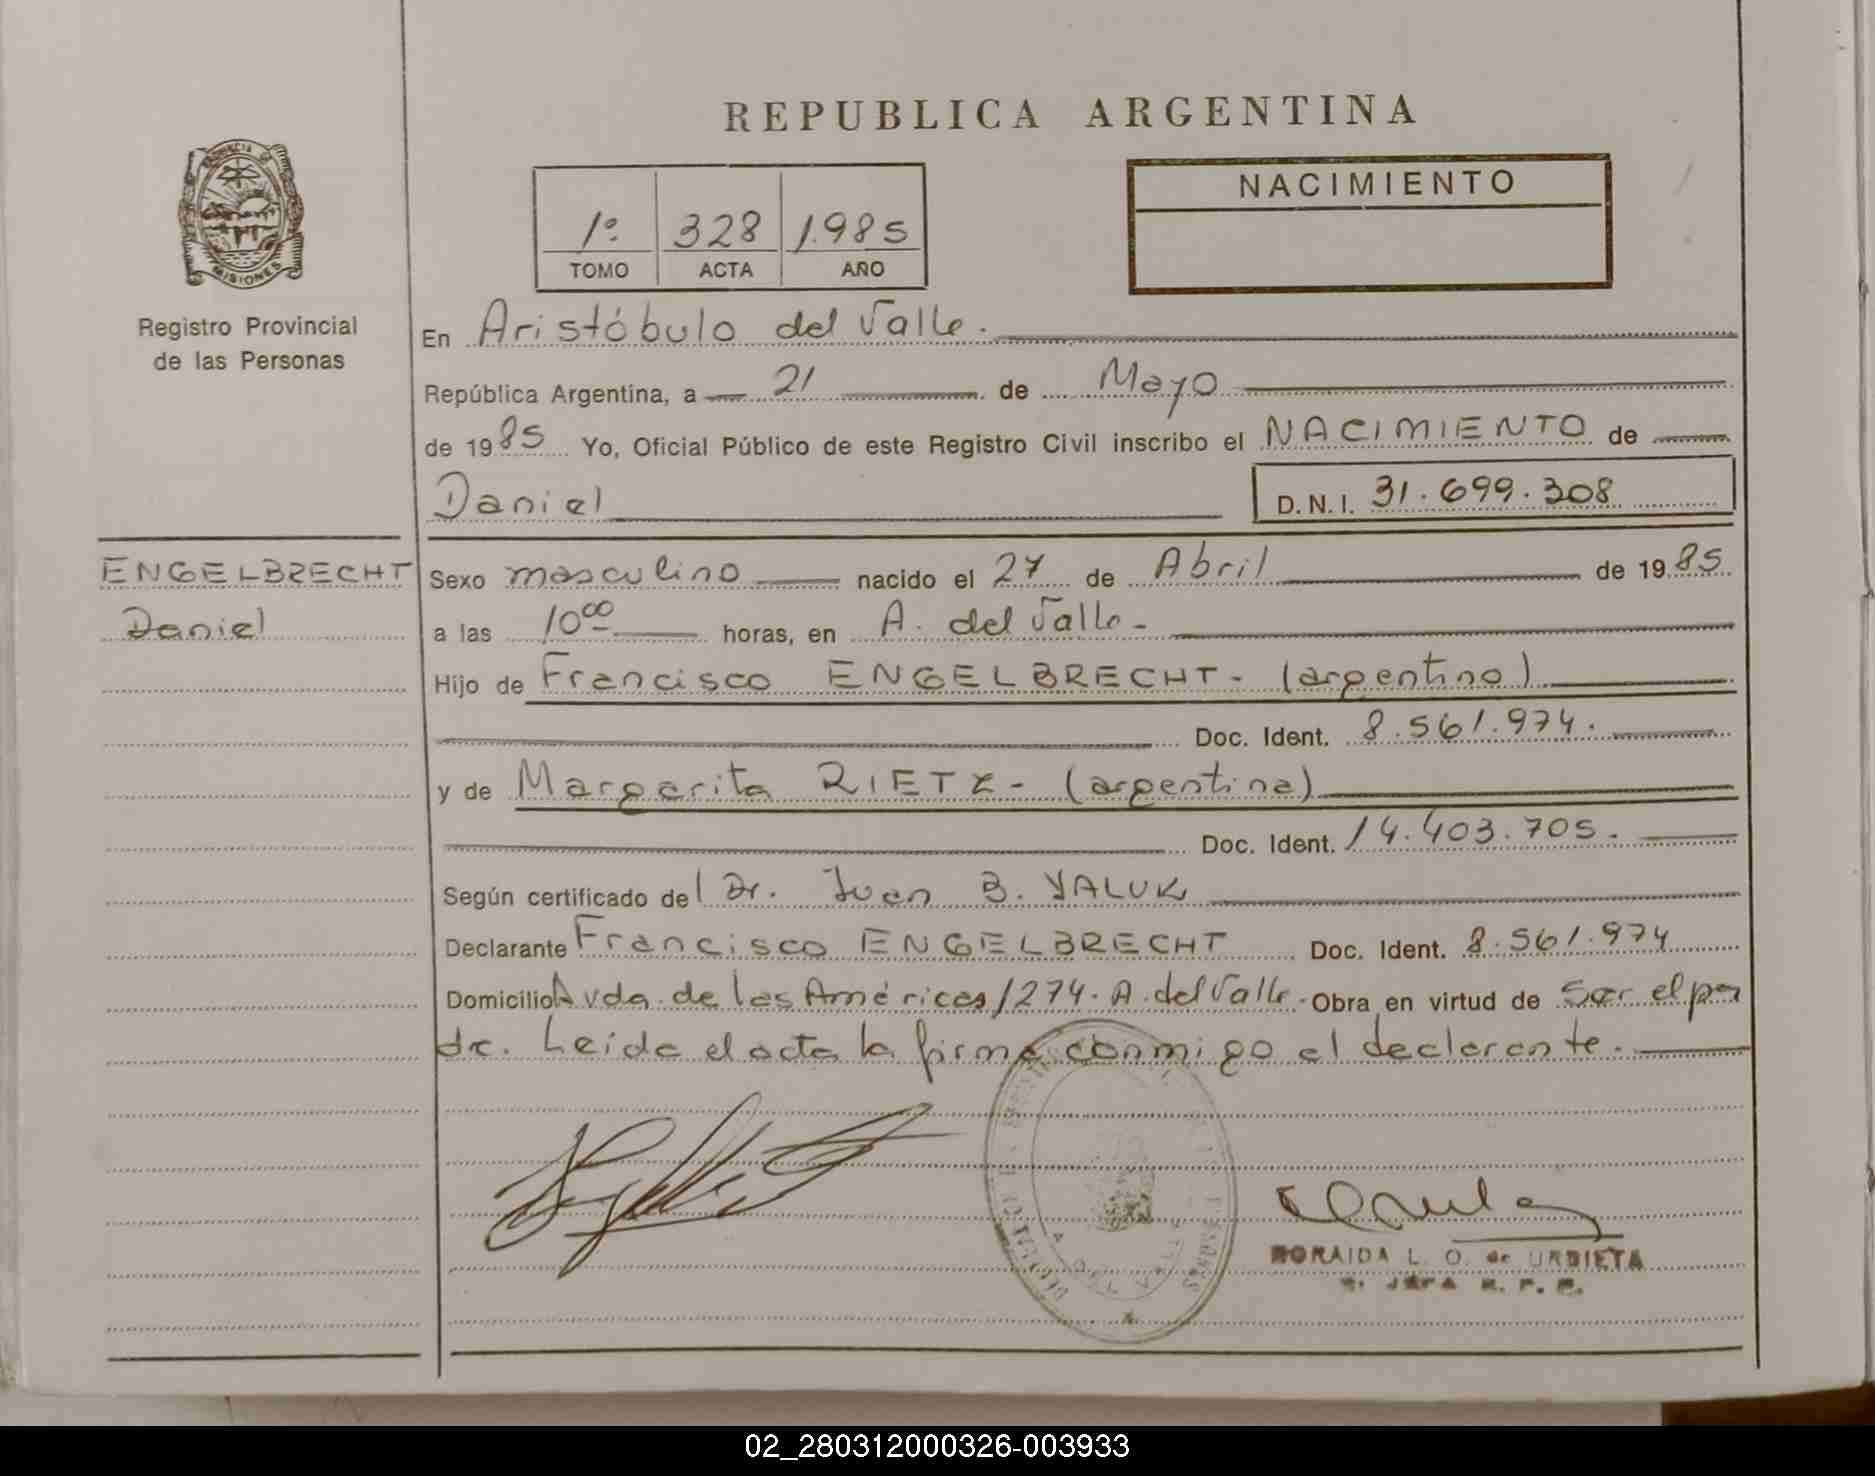 REPUBLICA ARGENTINA
PROVINCIA DE
MISIONES
Registro Provincial
de las Personas
1º 328 1.985
TOMO ACTA AÑO
NACIMIENTO
En Aristóbulo del Valle.
República Argentina, a 21 de Mayo
de 1985 Yo, Oficial Público de este Registro Civil inscribo el NACIMIENTO de
Daniel D.N.I. 31.699.308
ENGELBRECHT
Daniel
Sexo masculino nacido el 27 de Abril de 1985
a las 10⁰⁰ horas, en A. del Valle-
Hijo de Francisco ENGELBRECHT- (argentino)
Doc. Ident. 8.561.974.
y de Margarita RIETZ- (argentina)
Doc. Ident. 14.403.705.
Según certificado del Dr. Juan B. YALUK
Declarante Francisco ENGELBRECHT Doc. Ident. 8.561.974
Domicilio Avda. de las Américas 1274. A. del Valle. Obra en virtud de Ser el pa
dre. Leida el acta la firma conmigo el declarante.
L. O. de URBIETA
JEFA R. P. P.
02_280312000326-003933